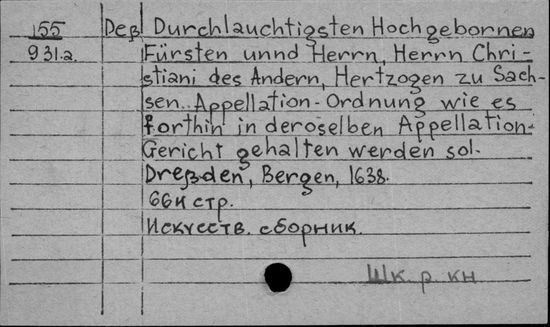 155 Deß Durchlauchtigsten Hochgebornen
931.a. Fürsten unnd Herrn, Herrn Chri-
stiani des Andern, Hertzogen zu Sach-
sen.. Appellation-Ordnung wie es
forthin in deroselben Appellation-
Gericht gehalten werden sol.
Dreßden, Bergen, 1638.
66 н стр.
Искусств. сборник.
Шк. р. кн